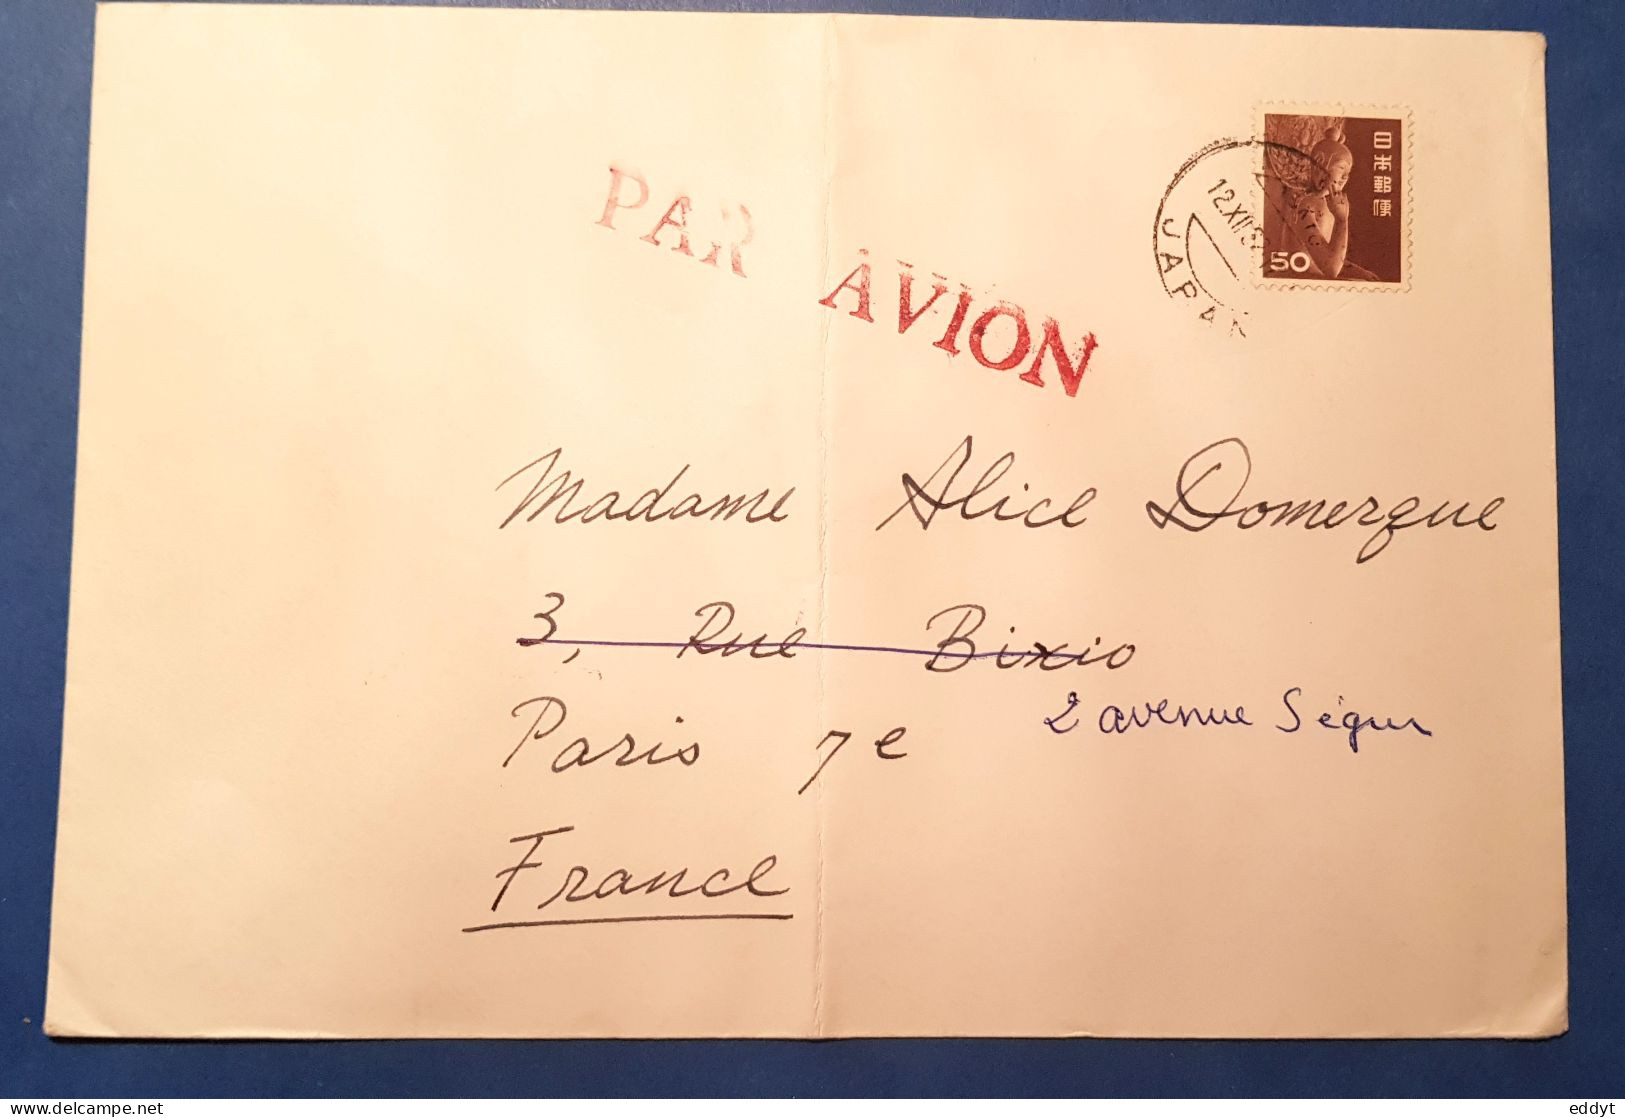 PAR AVION
日本郵便
50
12.XII
JAPAN
Madame Alice Domergue
3, Rue Bixio
2 avenue Ségur
Paris 7e
France
eddyt